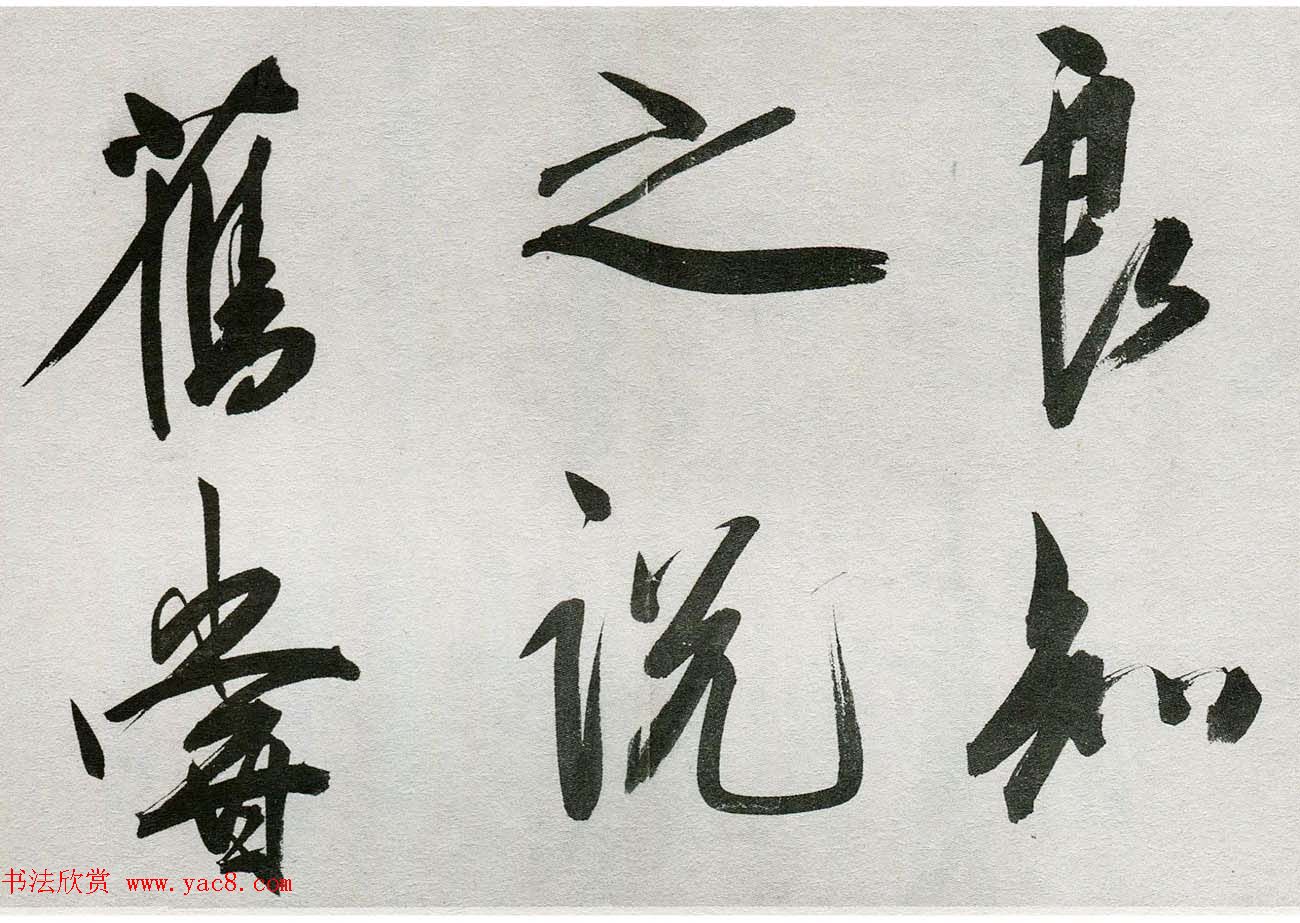 良知
之说
舊嘗
书法欣赏 www.yac8.com